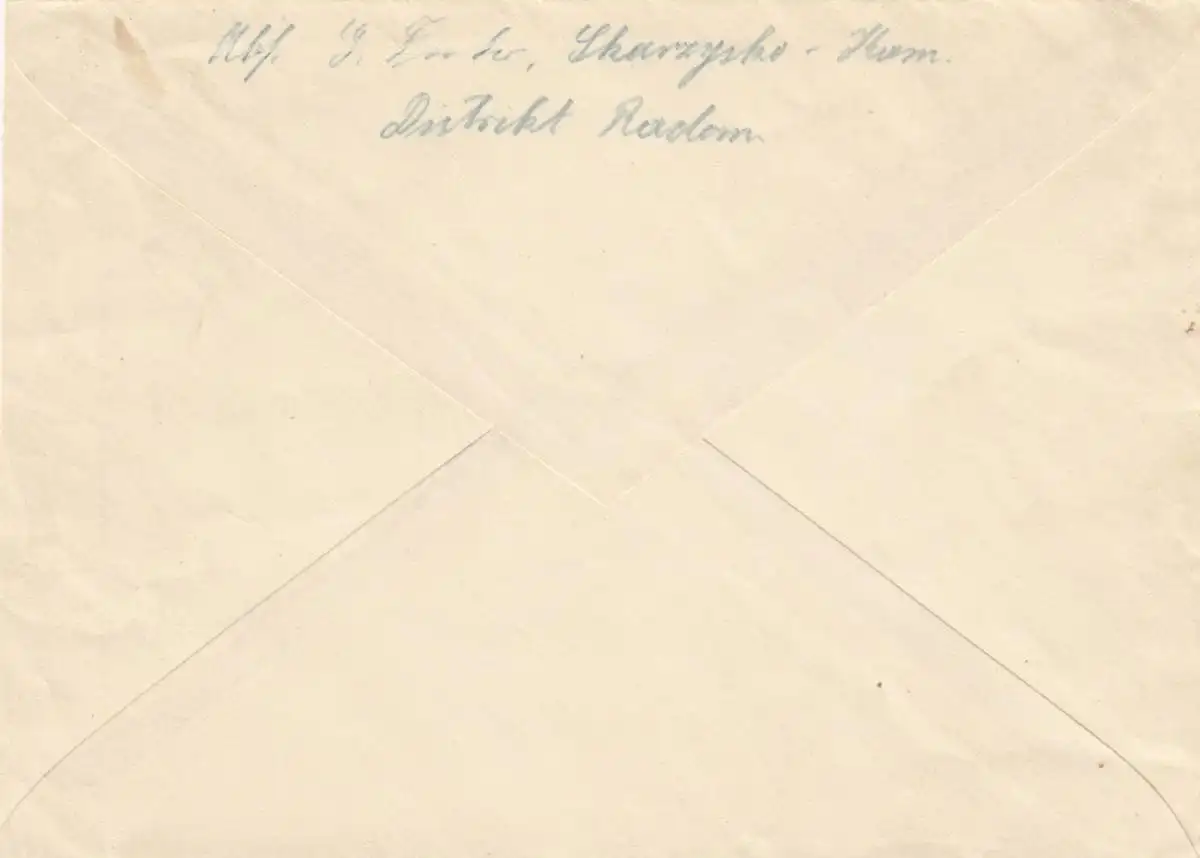 Abs. G. , Skarzysko - Kam.
Distrikt Radom